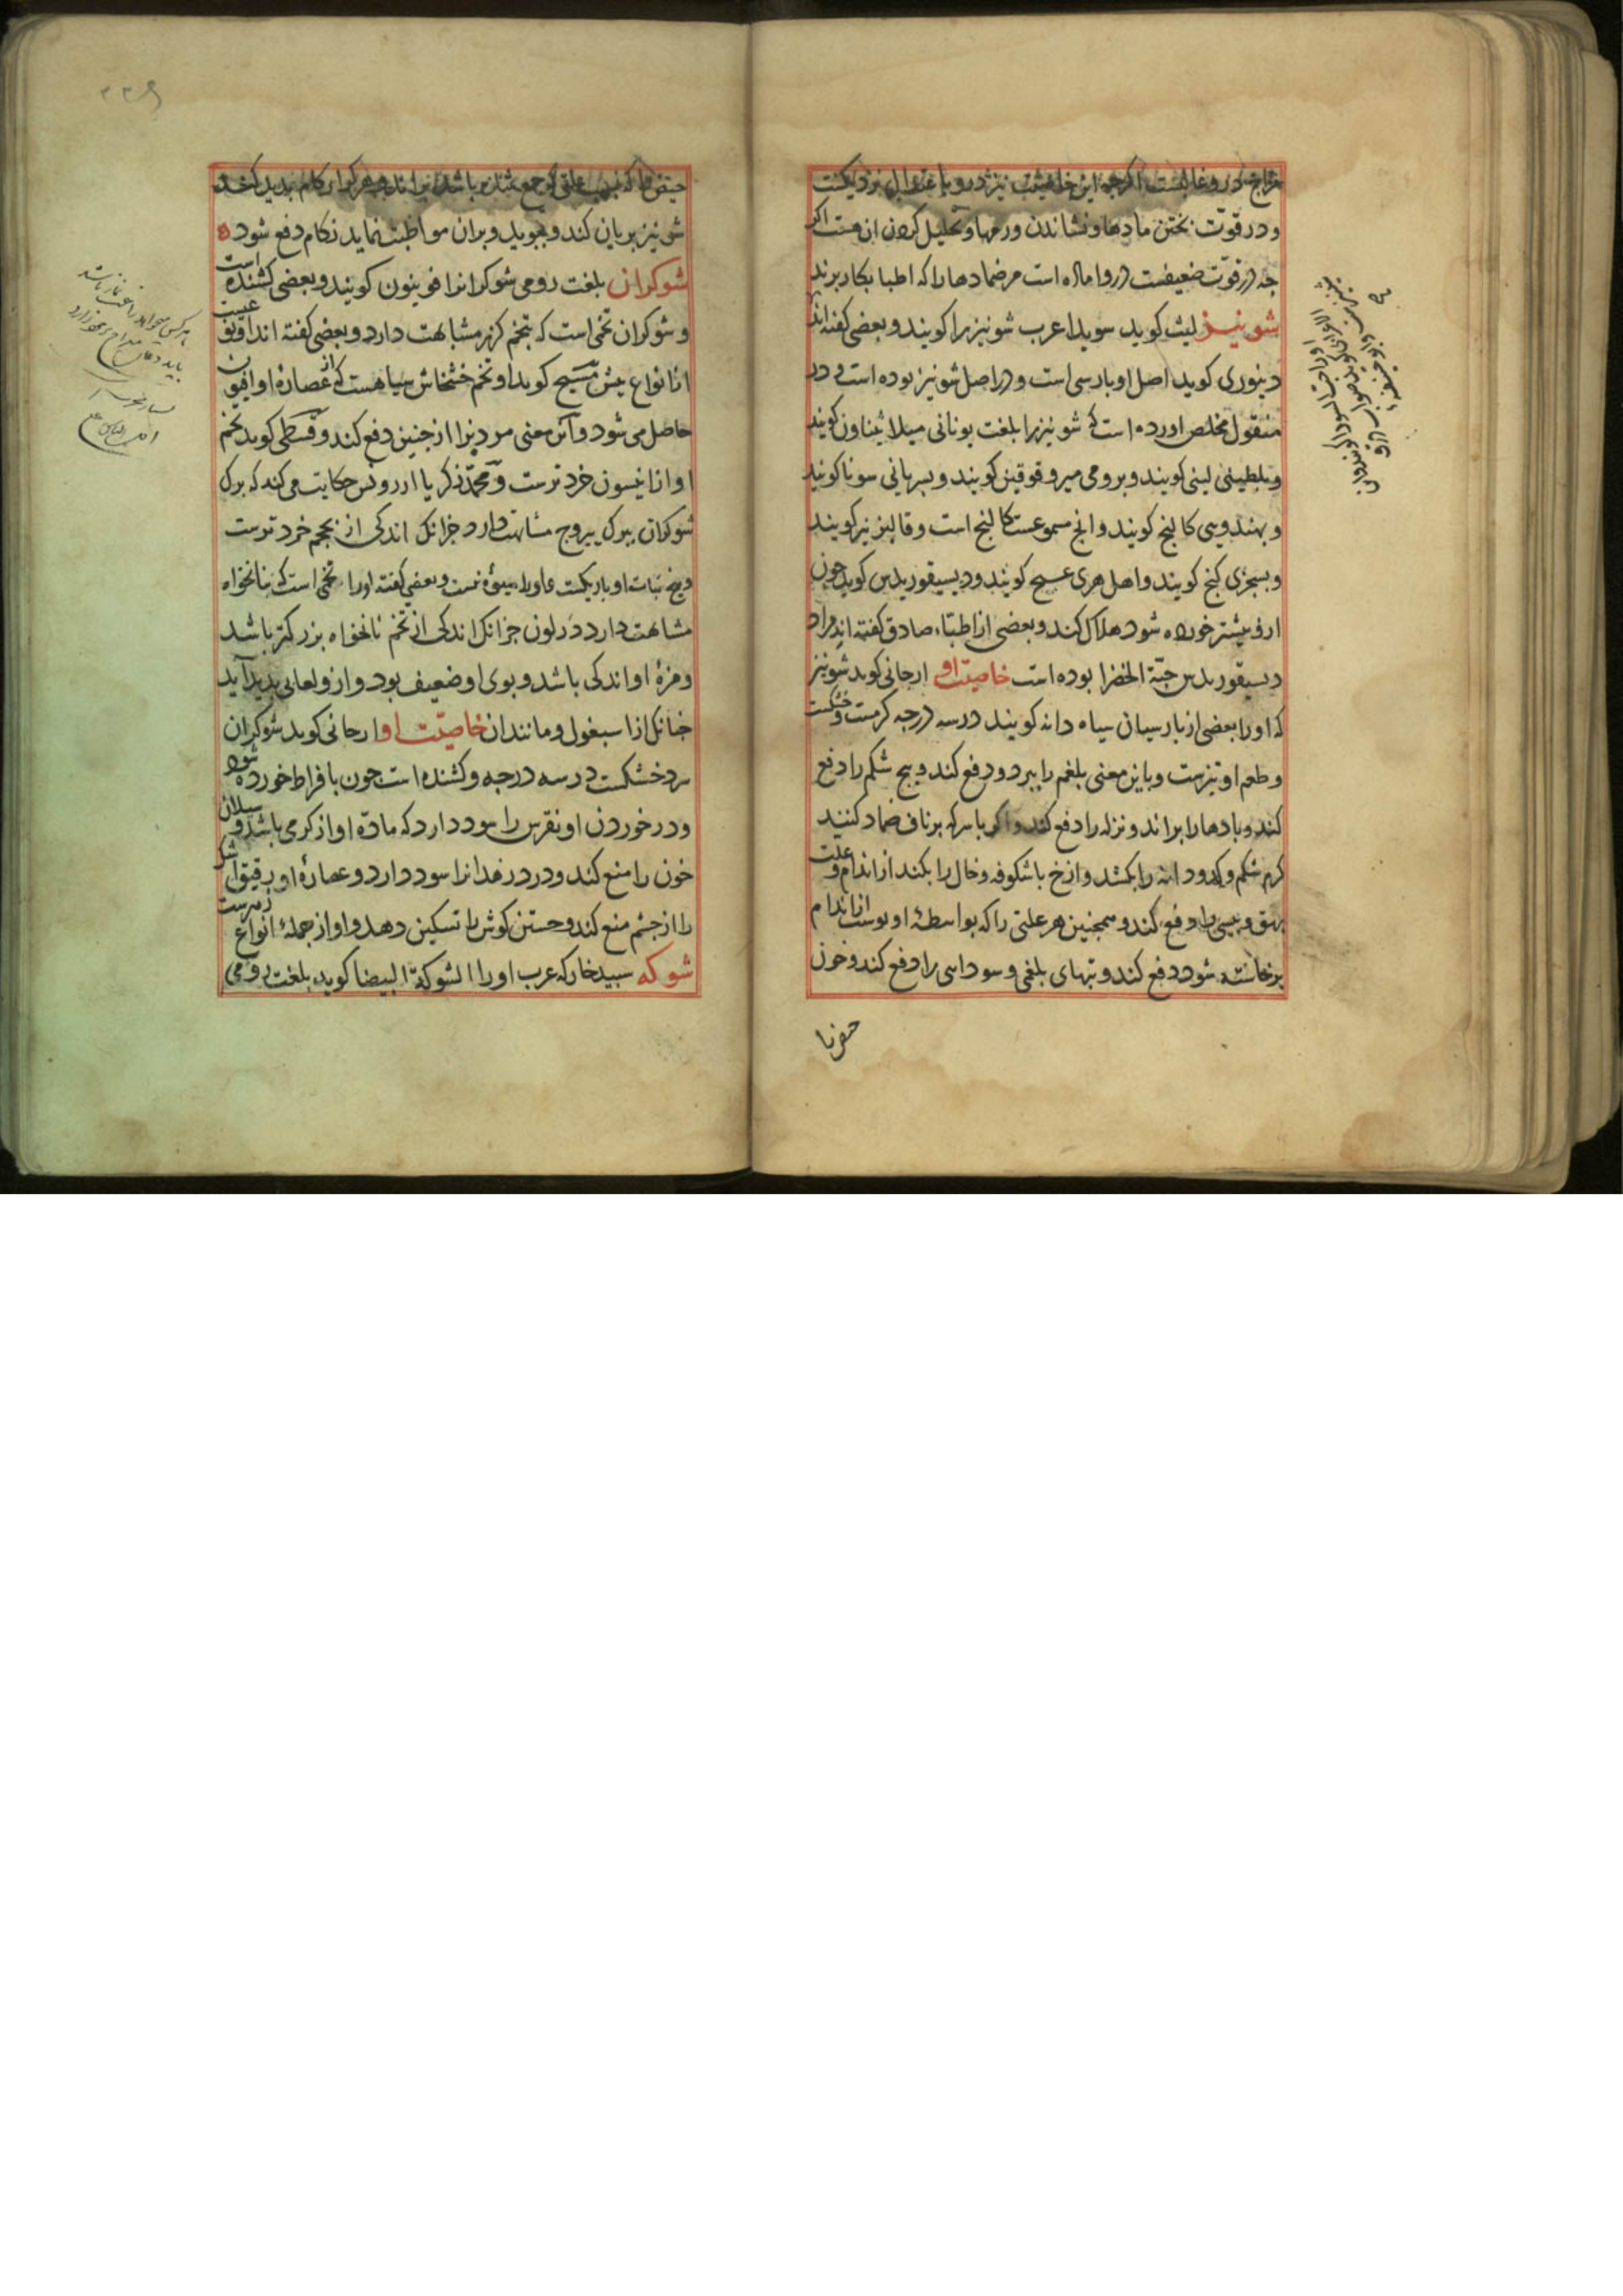 مزاج در و غالبست اکرچه این خاصیت نیز درو با عتدال نزدیکست
و در قوّت بختن مادها و نشاندن ورمها و تحلیل کردن ان هست اکر
جه در قوّت ضعیفست درو اماله است مر ضمادها را که اطبا بکار برند
شونیز لیث کوید سویدا عرب شونیز را کویند و بعضی کفته اند
دینوری کوید اصل او بارسی است و در اصل شونیز بوده است و در
منقول مخلص اورده است که شونیز را بلغت یونانی میلاثیناون کویند
و بلطینی لینی کویند و برومی میروقوقین کویند و بسریانی سونا کویند
و بهندویی کالنج کویند و انج مسموعست کالنج است و قالبز نیز کویند
و بسجزی کنج کویند و اهل هری کویند و دیسیقوریدس کوید جون
ازو بیشتر خورده شود هلاک کند و بعضی از اطبّاء صادق کفته اند مراد
دیسیقوریدس حبّة الخضرا بوده است خاصیت او ارجانی کوید شونیز
که او را بعضی از بارسیان سیاه دانه کویند در سه درجه کرمست و خشکست
و طعم او تیزست و باین معنی بلغم را ببرد و دفع کند و بیج شکم را دفع
کند و بادها را براند و نزله را دفع کند و اکر با سرکه بر ناف ضماد کنند
کرم شکم و کدودانه را بکشد و ازخ باشکوفه و خال را بکند از اندام و علت
بهق و بیسی را دفع کند و همجنین هر علتی را که بواسطهٔ او بوست از اندام
برخاسته شود دفع کند و تبهای بلغمی و سودایی را دفع کند و خون
حیض را
شونیز بریان کند و ببوید و بران مواظبت نماید زکام دفع شود
شوکران بلغت رومی شوکرانرا قونیون کویند و بعضی کشنده است
و شوکران تخمی است که بتخم کزر مشابهت دارد و بعضی کفته اند
از انواع بیش مسیح کوید او تخم خشخاش سیاهست که از عصارهٔ او افیون
حاصل می شود و این معنی مر دیزا از جنین دفع کند و قسطی کوید تخم
او از انیسون خردترست و محمّد زکریا از روفس حکایت می کند که برک
شوکران ببرک یبروج مشابهت دارد جزانک اندکی از بحجم خردترست
و بیخ نبات او باریکست و او را میوه نیست و بعضی کفته اورا تخمی است که بنانخواه
مشابهت دارد در لون جزانک اندکی از تخم نانخواه بزرکتر باشد
و مزهٔ او اندکی باشد و بوی او ضعیف بود و ازو لعابی بدید آید
جنانک از اسبغول و مانند ان خاصیّت او ارجانی کوید شوکران
سرد خشکست در سه درجه و کشنده است جون بافراط خورده شود
و در خوردن او نقرس را سود دارد که مادّه او از کرمی باشد و سیلان
خون را منع کند و درد رمد انرا سود دارد و عصارهٔ او رقیق اشک
را از جشم منع کند و جستن کوش را تسکین دهد و او از جملهٔ انواع زهرست
شوکه سبید خار که عرب او را الشوکة البیضا کوید بلغت رومی